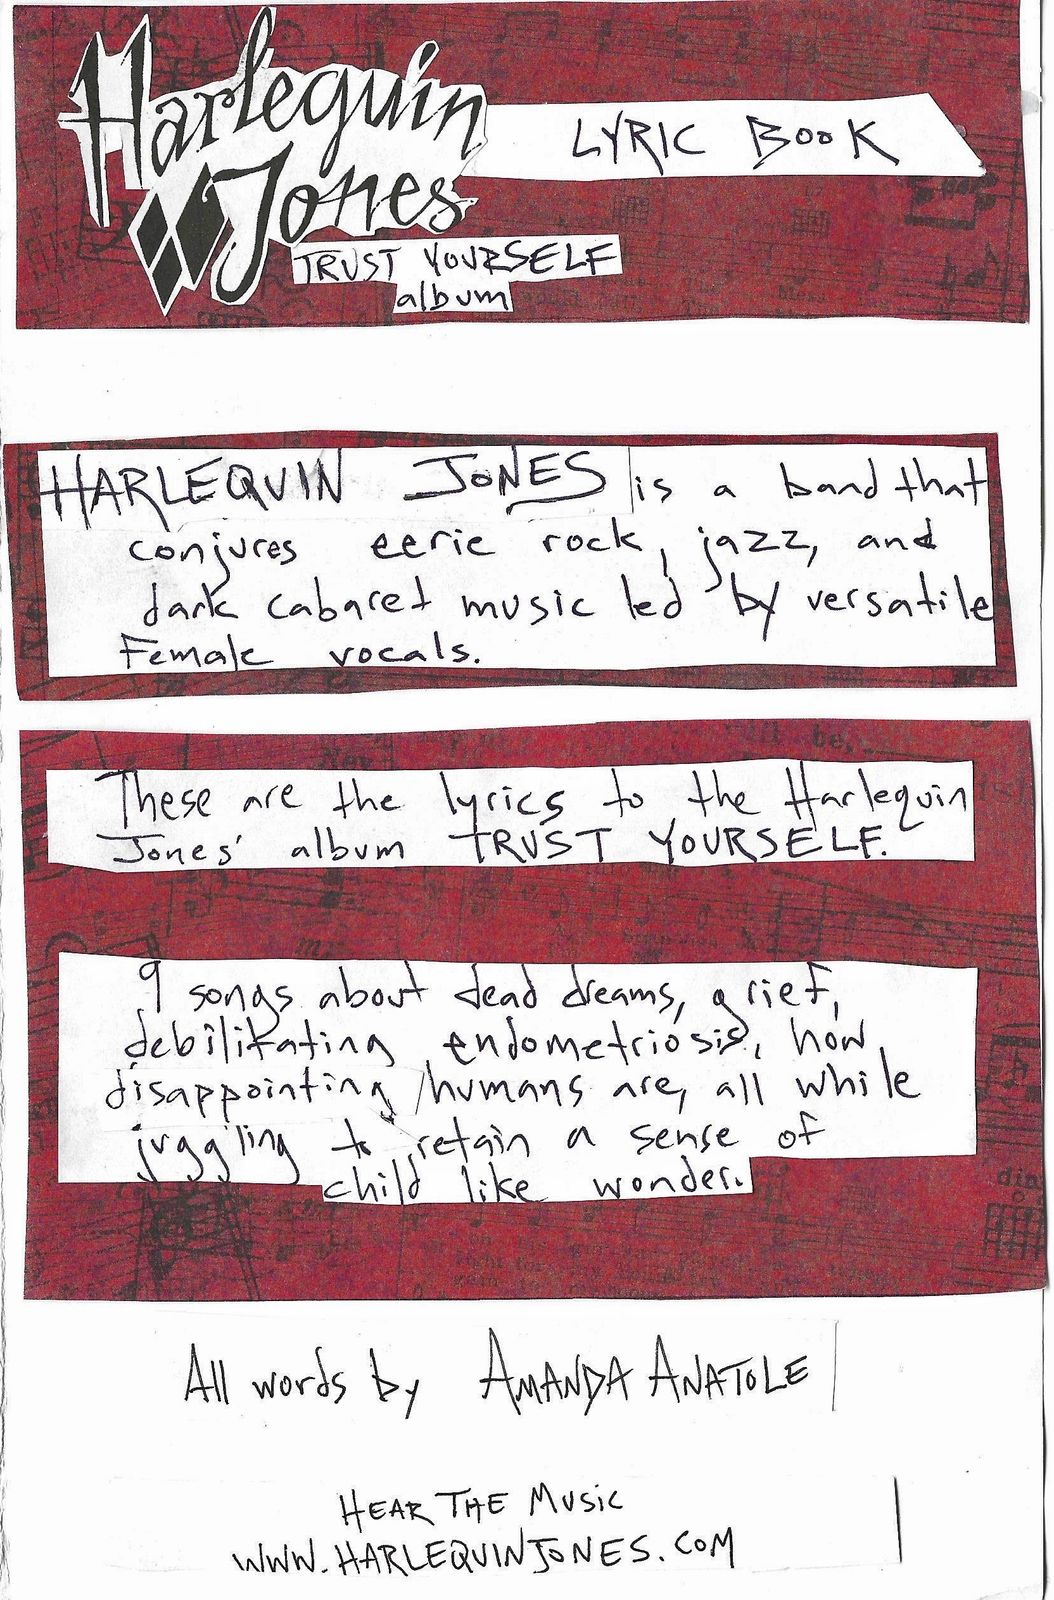 Harlequin
Jones
LYRIC BOOK
TRUST YOURSELF
album
HARLEQUIN JONES is a band that
conjures eerie rock, jazz, and
dark cabaret music led by versatile
Female vocals.
These are the lyrics to the Harlequin
Jones' album TRUST YOURSELF.
9 songs about dead dreams, grief,
debilitating endometriosis, how
disappointing humans are, all while
juggling to retain a sense of
child like wonder.
All words by AMANDA ANATOLE
HEAR THE MUSIC
WWW.HARLEQUINJONES.COM